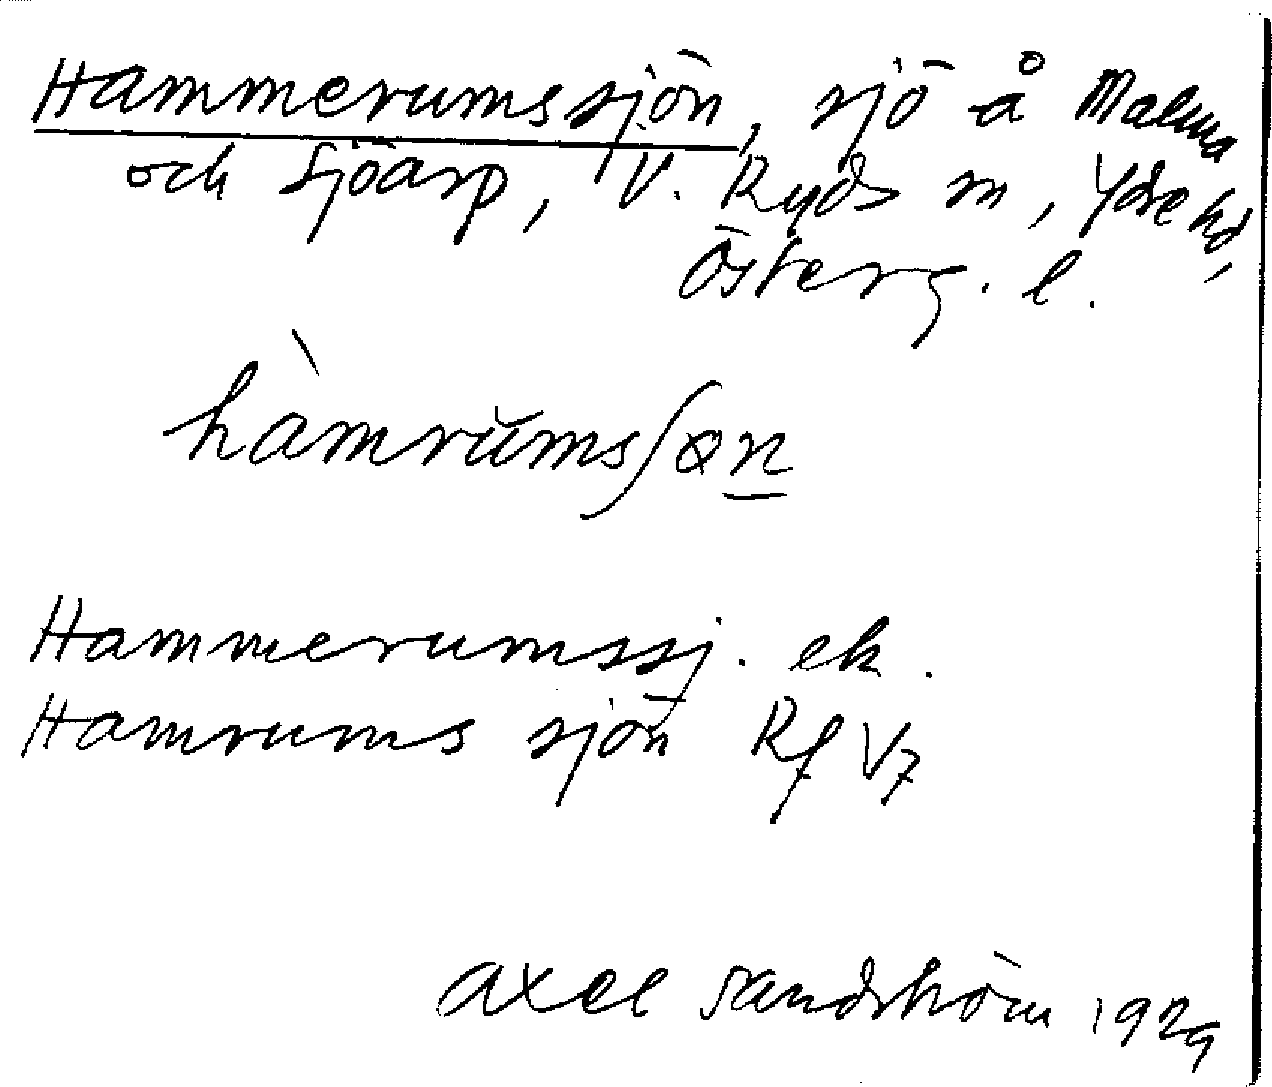 Hammerumssjön, sjö å Malma
och Sjöarp, V. Ryds sn, Ydre hd,
Österg. l.
hàmrŭmsʃøn
Hammerumssj. ek.
Hamrums sjön Rf V7
Axel Sandström 1929